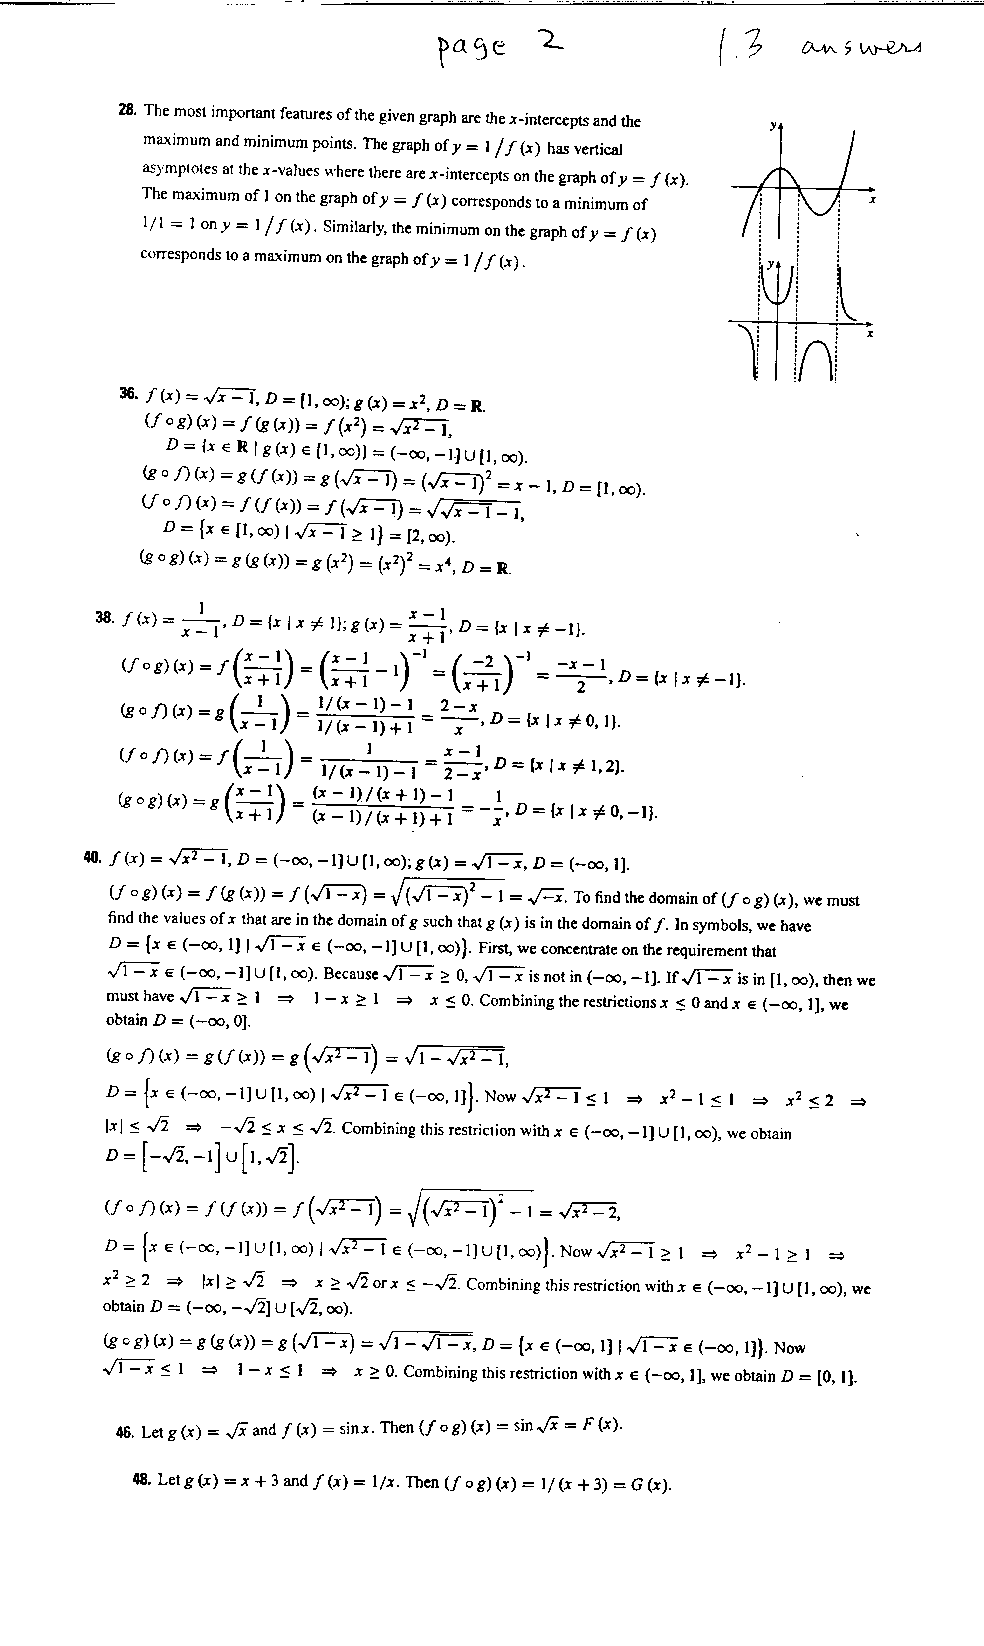 page 2 1.3 answers
28. The most important features of the given graph are the x-intercepts and the
maximum and minimum points. The graph of y = 1/f(x) has vertical
asymptotes at the x-values where there are x-intercepts on the graph of y = f(x).
The maximum of 1 on the graph of y = f(x) corresponds to a minimum of
1/1 = 1 on y = 1/f(x). Similarly, the minimum on the graph of y = f(x)
corresponds to a maximum on the graph of y = 1/f(x).
y
x
y
x
36. f(x) = √(x − 1), D = [1, ∞); g(x) = x², D = R.
(f ∘ g)(x) = f(g(x)) = f(x²) = √(x² − 1),
D = {x ∈ R | g(x) ∈ [1, ∞)} = (−∞, −1] ∪ [1, ∞).
(g ∘ f)(x) = g(f(x)) = g(√(x − 1)) = (√(x − 1))² = x − 1, D = [1, ∞).
(f ∘ f)(x) = f(f(x)) = f(√(x − 1)) = √(√(x − 1) − 1),
D = {x ∈ [1, ∞) | √(x − 1) ≥ 1} = [2, ∞).
(g ∘ g)(x) = g(g(x)) = g(x²) = (x²)² = x⁴, D = R.
38. f(x) = 1/(x − 1), D = {x | x ≠ 1}; g(x) = (x − 1)/(x + 1), D = {x | x ≠ −1}.
(f ∘ g)(x) = f((x − 1)/(x + 1)) = ((x − 1)/(x + 1) − 1)⁻¹ = (−2/(x + 1))⁻¹ = (−x − 1)/2, D = {x | x ≠ −1}.
(g ∘ f)(x) = g(1/(x − 1)) = (1/(x − 1) − 1)/(1/(x − 1) + 1) = (2 − x)/x, D = {x | x ≠ 0, 1}.
(f ∘ f)(x) = f(1/(x − 1)) = 1/(1/(x − 1) − 1) = (x − 1)/(2 − x), D = {x | x ≠ 1, 2}.
(g ∘ g)(x) = g((x − 1)/(x + 1)) = ((x − 1)/(x + 1) − 1)/((x − 1)/(x + 1) + 1) = −1/x, D = {x | x ≠ 0, −1}.
40. f(x) = √(x² − 1), D = (−∞, −1] ∪ [1, ∞); g(x) = √(1 − x), D = (−∞, 1].
(f ∘ g)(x) = f(g(x)) = f(√(1 − x)) = √((√(1 − x))² − 1) = √(−x). To find the domain of (f ∘ g)(x), we must
find the values of x that are in the domain of g such that g(x) is in the domain of f. In symbols, we have
D = {x ∈ (−∞, 1] | √(1 − x) ∈ (−∞, −1] ∪ [1, ∞)}. First, we concentrate on the requirement that
√(1 − x) ∈ (−∞, −1] ∪ [1, ∞). Because √(1 − x) ≥ 0, √(1 − x) is not in (−∞, −1]. If √(1 − x) is in [1, ∞), then we
must have √(1 − x) ≥ 1 ⇒ 1 − x ≥ 1 ⇒ x ≤ 0. Combining the restrictions x ≤ 0 and x ∈ (−∞, 1], we
obtain D = (−∞, 0].
(g ∘ f)(x) = g(f(x)) = g(√(x² − 1)) = √(1 − √(x² − 1)),
D = {x ∈ (−∞, −1] ∪ [1, ∞) | √(x² − 1) ∈ (−∞, 1]}. Now √(x² − 1) ≤ 1 ⇒ x² − 1 ≤ 1 ⇒ x² ≤ 2 ⇒
|x| ≤ √2 ⇒ −√2 ≤ x ≤ √2. Combining this restriction with x ∈ (−∞, −1] ∪ [1, ∞), we obtain
D = [−√2, −1] ∪ [1, √2].
(f ∘ f)(x) = f(f(x)) = f(√(x² − 1)) = √((√(x² − 1))² − 1) = √(x² − 2),
D = {x ∈ (−∞, −1] ∪ [1, ∞) | √(x² − 1) ∈ (−∞, −1] ∪ [1, ∞)}. Now √(x² − 1) ≥ 1 ⇒ x² − 1 ≥ 1 ⇒
x² ≥ 2 ⇒ |x| ≥ √2 ⇒ x ≥ √2 or x ≤ −√2. Combining this restriction with x ∈ (−∞, −1] ∪ [1, ∞), we
obtain D = (−∞, −√2] ∪ [√2, ∞).
(g ∘ g)(x) = g(g(x)) = g(√(1 − x)) = √(1 − √(1 − x)), D = {x ∈ (−∞, 1] | √(1 − x) ∈ (−∞, 1]}. Now
√(1 − x) ≤ 1 ⇒ 1 − x ≤ 1 ⇒ x ≥ 0. Combining this restriction with x ∈ (−∞, 1], we obtain D = [0, 1].
46. Let g(x) = √x and f(x) = sin x. Then (f ∘ g)(x) = sin √x = F(x).
48. Let g(x) = x + 3 and f(x) = 1/x. Then (f ∘ g)(x) = 1/(x + 3) = G(x).